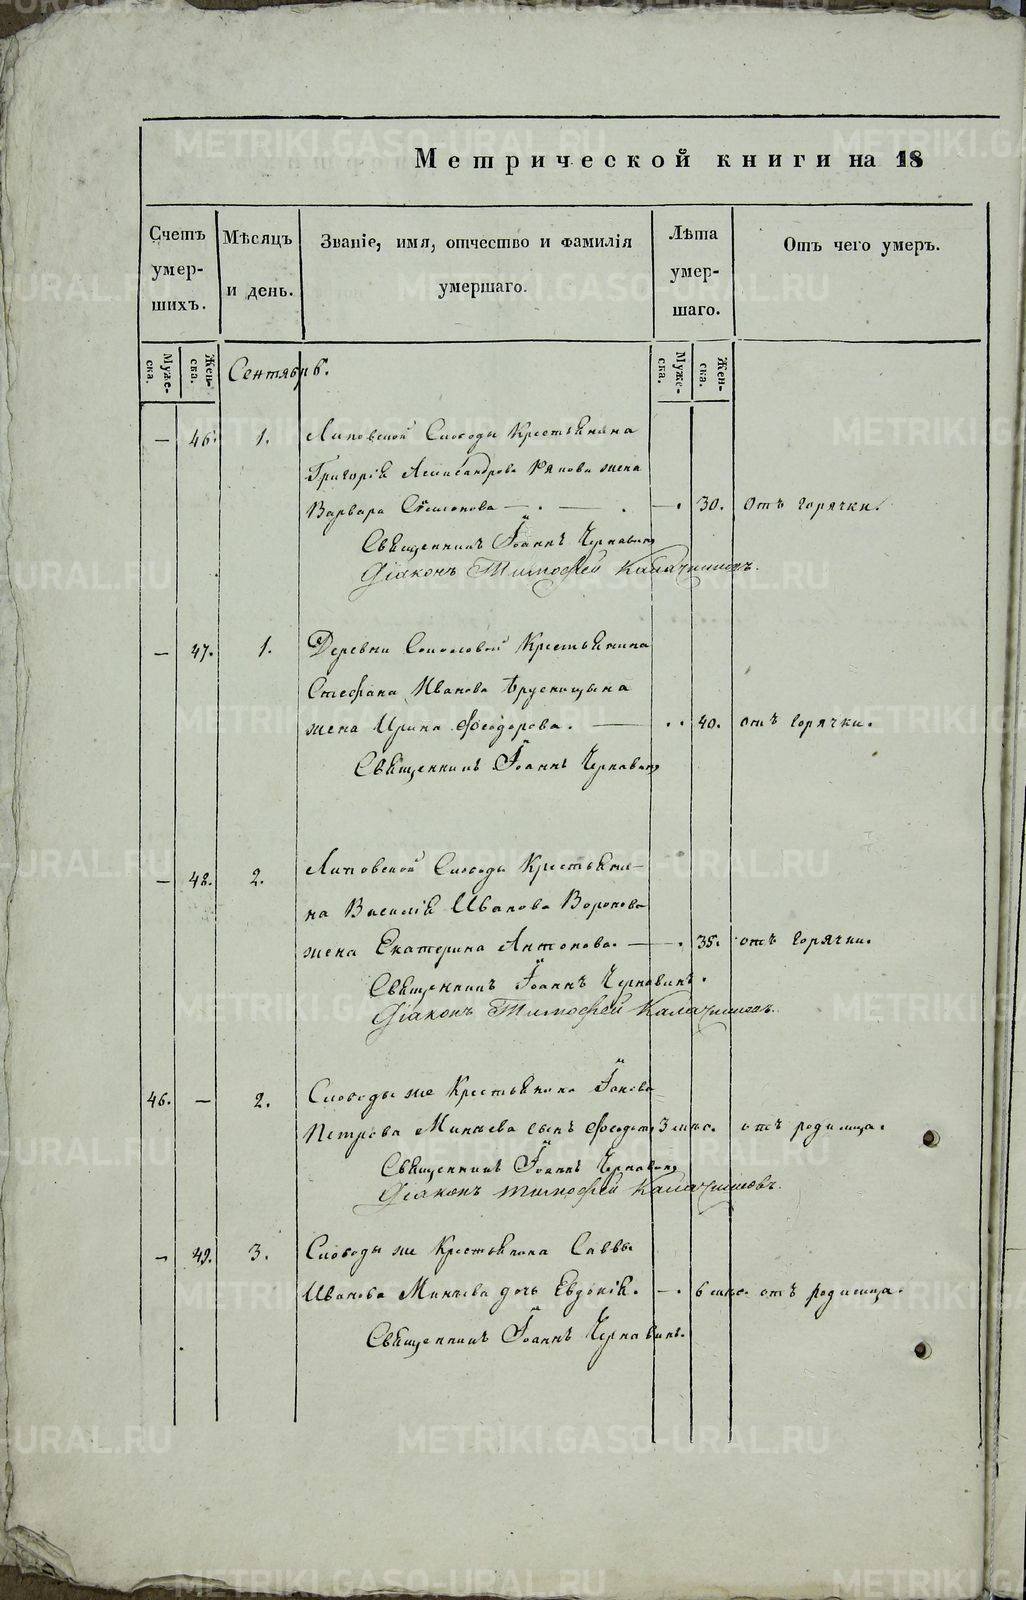 Метрической книги на 18
Счетъ умершихъ.
Мѣсяцъ и день.
Званіе, имя, отчество и фамилія умершаго.
Лѣта умершаго.
Отъ чего умеръ.
Мужеска.
Женска.
Сентябрь.
Мужеска.
Женска.
— 46. 1. Липовской Слободы Крестьянина
Григорія Александрова жена
Варвара Симонова — 30. отъ горячки.
Священникъ Іоаннъ Чернавинъ
Діаконъ Тимофей Калачниковъ.
— 47. 1. Деревни Соколовой Крестьянина
Стефана Иванова Брусницына
жена Ирина Феодорова. — 40. отъ горячки.
Священникъ Іоаннъ Чернавинъ
— 48. 2. Липовской Слободы Крестьяни-
на Василія Иванова Воронова
жена Екатерина Антонова. — 35. отъ горячки.
Священникъ Іоаннъ Чернавинъ.
Діаконъ Тимофей Калачниковъ.
46. — 2. Слободы же Крестьянина Іакова
Петрова Минеева сынъ Феодотъ 3 мѣс. отъ родимца.
Священникъ Іоаннъ Чернавинъ
Діаконъ Тимофей Калачниковъ.
— 49. 3. Слободы же Крестьянина Саввы
Иванова Минеева дочь Евдокія. — 6 мѣс. отъ родимца.
Священникъ Іоаннъ Чернавинъ.
METRIKI.GASO-URAL.RU